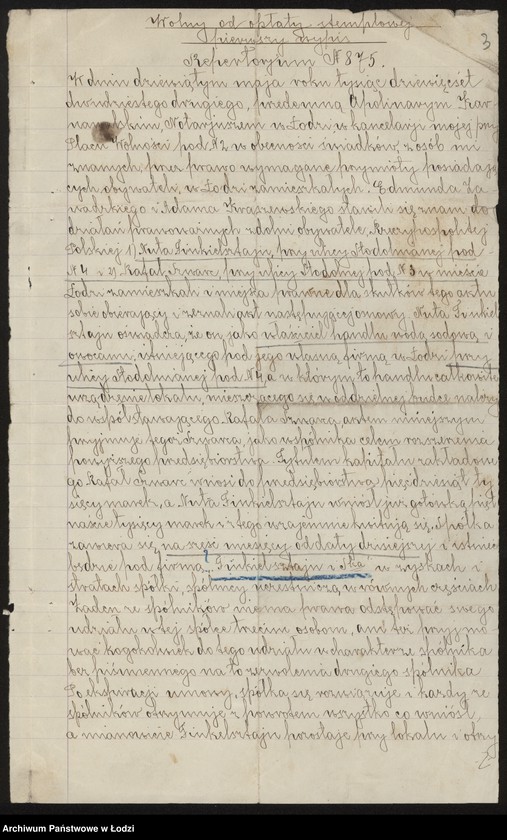 Wolny od opłaty stemplowej
pierwszy wypis
3
Repertorjum № 875.
W dniu dziewiątym maja roku tysiąc dziewięćset
dwudziestego drugiego, przedemną Apolinarym Kar-
nawalskim, Notarjuszem w Łodzi, w kancelarji mojej przy
Placu Wolności pod № 2 w obecności świadków, osób mi
znanych, przez prawo wymagane przymioty posiadają-
cych, obywateli, w Łodzi zamieszkałych: Edmunda Za-
wadzkiego i Adama Kraszewskiego stawili się znani do
działań prawnych zdolni obywatele Rzeczypospolitej
Polskiej 1) Nuta Finkielsztajn, przy ulicy Stodolnianej pod
№ 4 i 2) Rafał Szwarc, przy ulicy Stodolnej pod № 3 w mieście
Łodzi zamieszkali i miejsca prawne dla skutków tego aktu
sobie obierający i zeznali akt następującej umowy. Nuta Finkiel-
sztajn oświadcza, że on, jako właściciel handlu wodą sodową i
owocami, istniejącego pod jego własną firmą w Łodzi przy
ulicy Stodolnianej pod № 4, a w którym to handlu całkowite
urządzenie lokalu, mieszczącego się w oddzielnej budce należy
do współstawającego Rafała Szwarca, aktem niniejszym
przyjmuje tegoż Szwarca, jako wspólnika celem rozszerzenia
powyższego przedsiębiorstwa. Tytułem kapitału zakładowe-
go Rafał Szwarc wnosi do przedsiębiorstwa pięćdziesiąt ty-
sięcy marek, a Nuta Finkielsztajn wniósł już gotówką pięt-
naście tysięcy marek i z tego wzajemnie kwitują się, i spółka
zawiera się na sześć miesięcy od daty dzisiejszej i istnieć
będzie pod firmą: „Finkielsztajn i S-ka" w zyskach i
stratach spółki, spólnicy uczestniczą w równych częściach
Żaden ze spólników nie ma prawa odstępować swego
udziału w tej spółce trzecim osobom, ani też przyjmo-
wać kogokolwiek do tego udziału w charakterze spólnika
bez piśmiennego na to zezwolenia drugiego spólnika
Po ekspiracji umowy, spółka się rozwiązuje i każdy ze
spólników otrzymuje z powrotem wszystko co wniósł,
a mianowicie Finkielsztajn pozostaje przy lokalu i otrzy-
Archiwum Państwowe w Łodzi